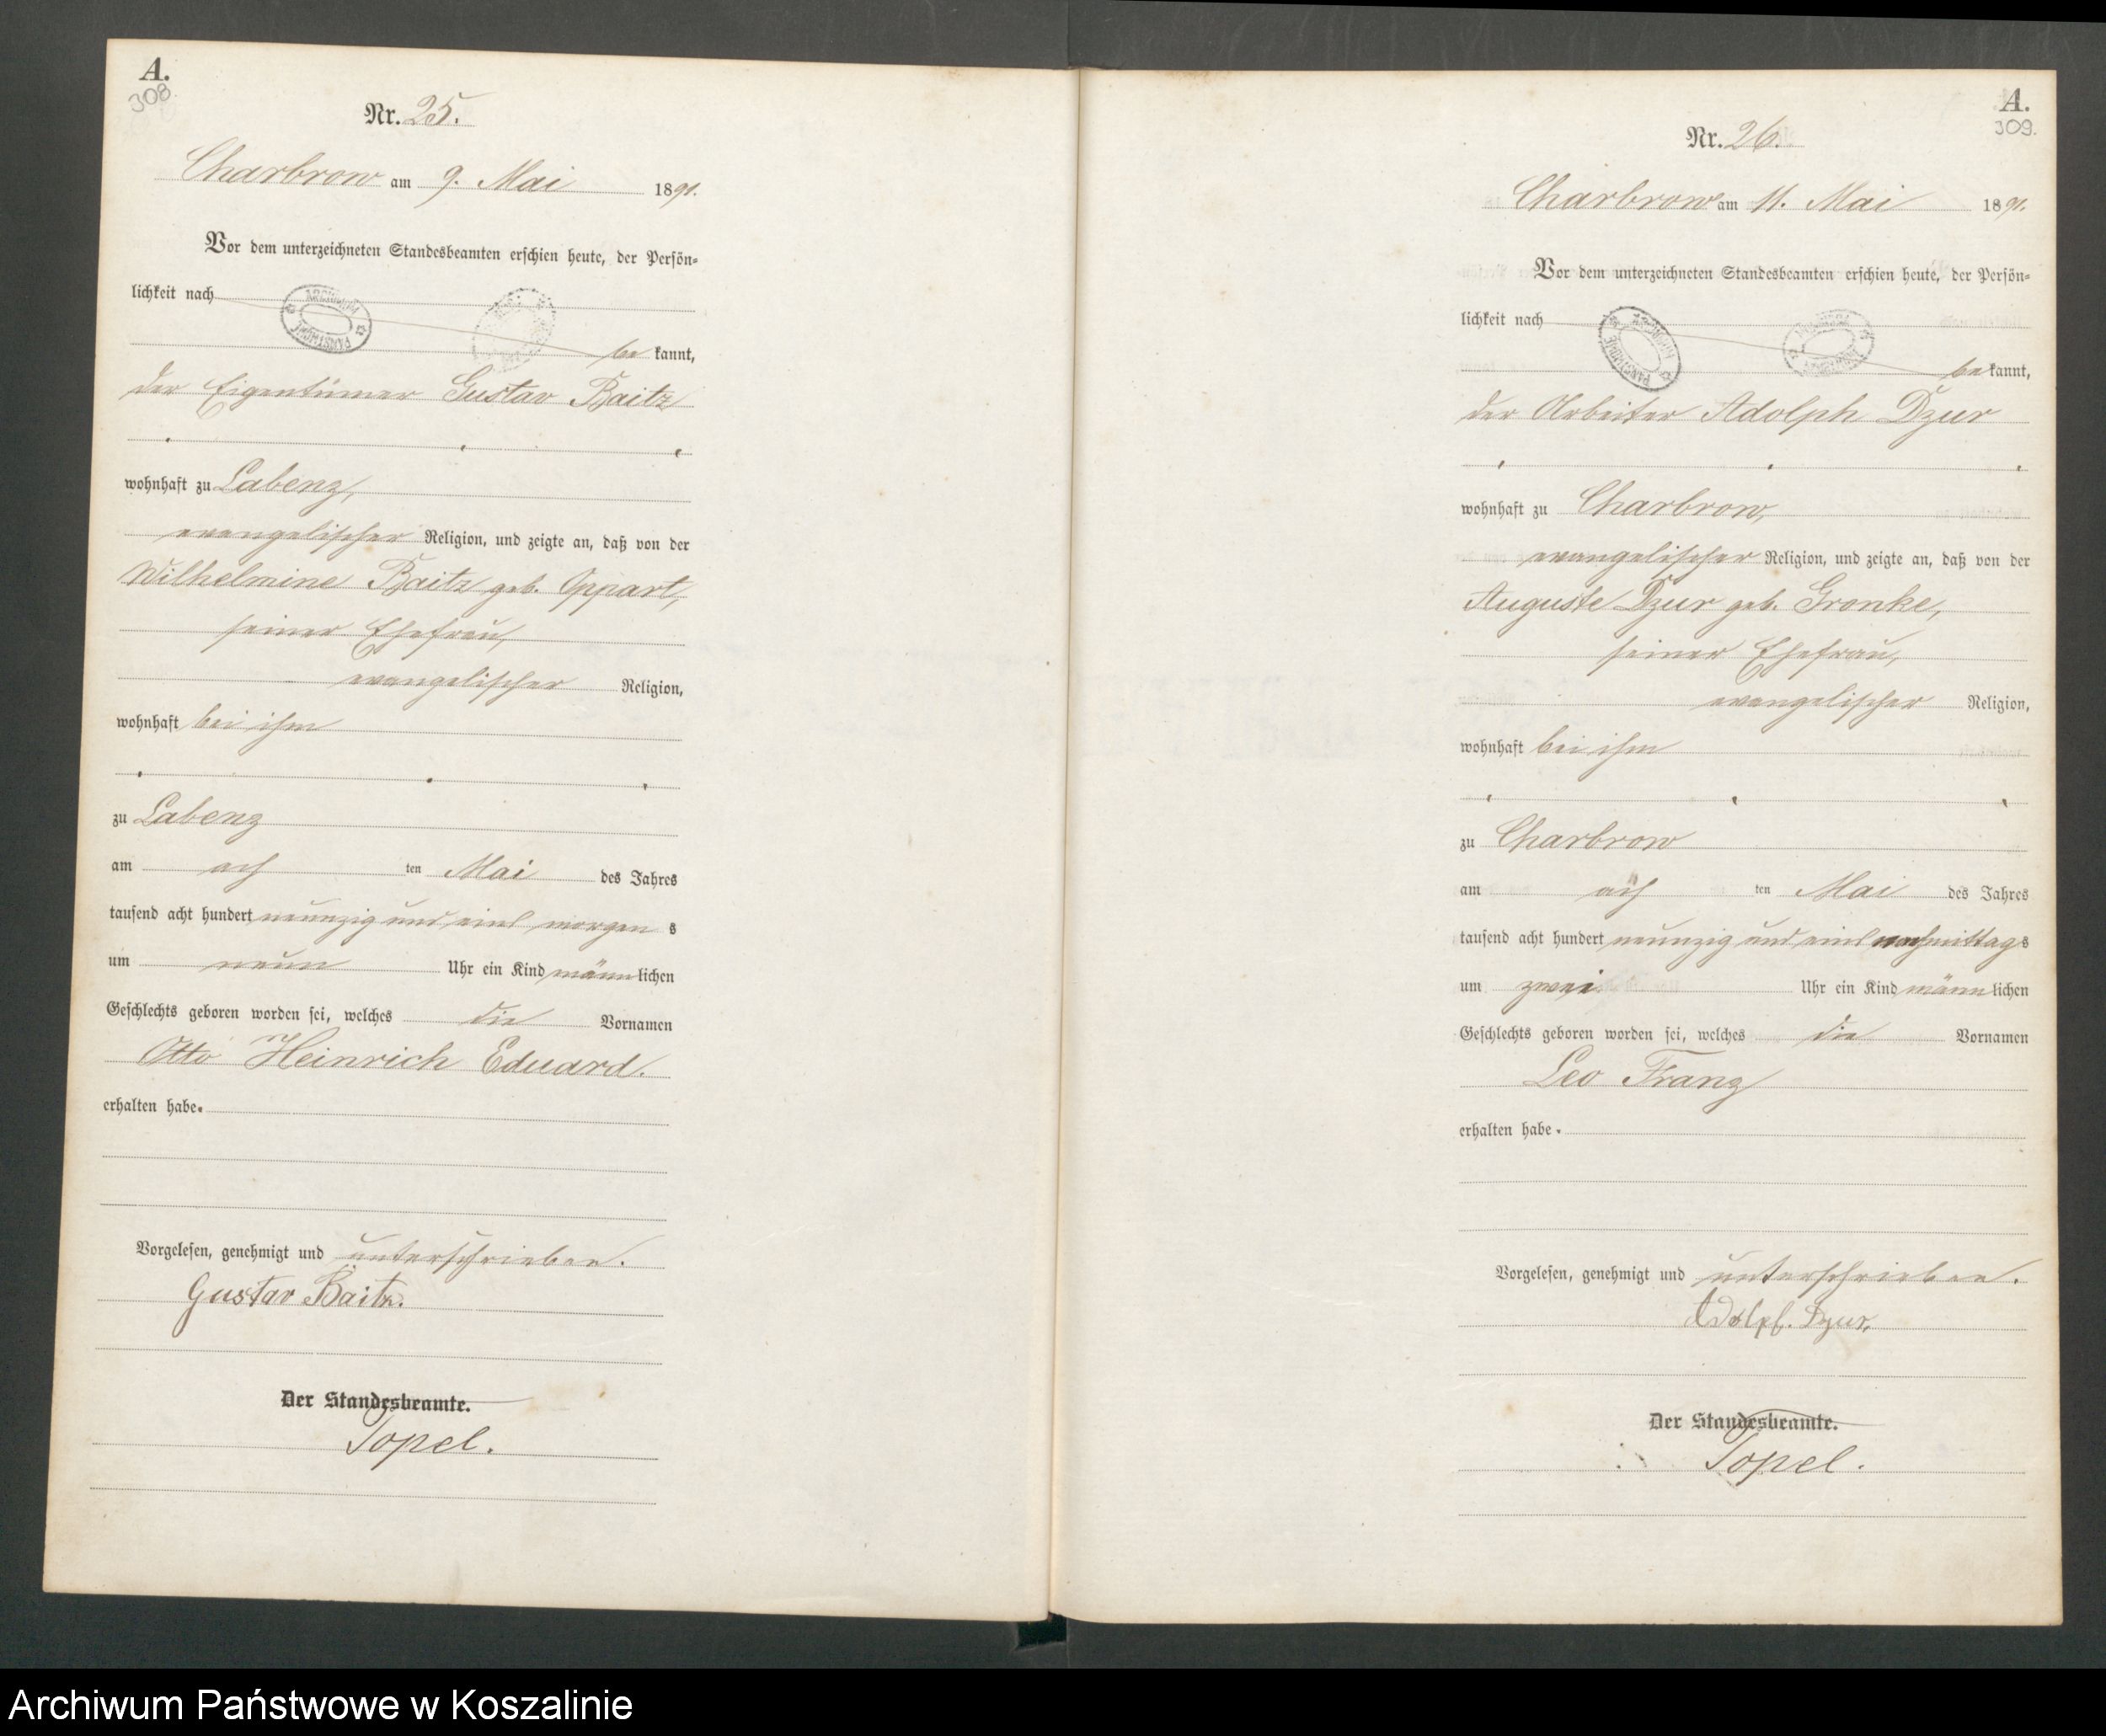 A.
308
Nr. 25.
Charbrow am 9. Mai 1891.
Vor dem unterzeichneten Standesbeamten erschien heute, der Persön=
lichkeit nach
be kannt,
der Eigentümer Gustav Baitz
wohnhaft zu Labenz,
evangelischer Religion, und zeigte an, daß von der
Wilhelmine Baitz geb. Oppart,
seiner Ehefrau,
evangelischer Religion,
wohnhaft bei ihm
zu Labenz
am ach ten Mai des Jahres
tausend acht hundert neunzig und eins morgen s
um neun Uhr ein Kind männ lichen
Geschlechts geboren worden sei, welches die Vornamen
Otto Heinrich Eduard.
erhalten habe.
Vorgelesen, genehmigt und unterschrieben.
Gustav Baitz.
Der Standesbeamte.
Topel.
A.
309.
Nr. 26.
Charbrow am 11. Mai 1891.
Vor dem unterzeichneten Standesbeamten erschien heute, der Persön=
lichkeit nach
be kannt,
der Arbeiter Adolph Dzur
wohnhaft zu Charbrow,
evangelischer Religion, und zeigte an, daß von der
Auguste Dzur geb. Gronke,
seiner Ehefrau,
evangelischer Religion,
wohnhaft bei ihm
zu Charbrow
am ach ten Mai des Jahres
tausend acht hundert neunzig und eins nachmittag s
um zwei Uhr ein Kind männ lichen
Geschlechts geboren worden sei, welches die Vornamen
Leo Franz
erhalten habe.
Vorgelesen, genehmigt und unterschrieben.
Adolph. Dzur,
Der Standesbeamte.
Topel.
Archiwum Państwowe w Koszalinie